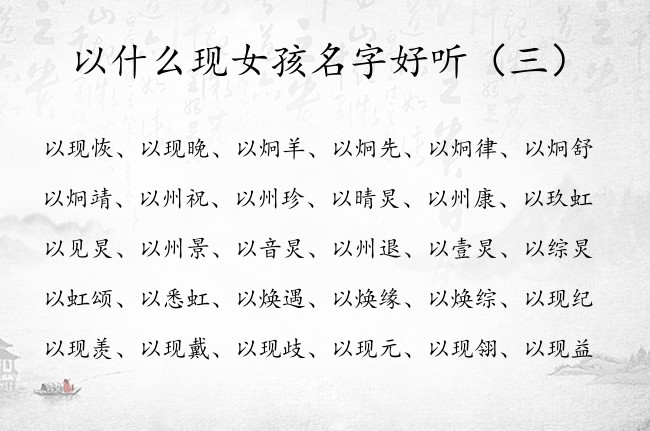 以什么现女孩名字好听（三）
以现恢、以现晚、以炯羊、以炯先、以炯律、以炯舒
以炯靖、以州祝、以州珍、以晴炅、以州康、以玖虹
以见炅、以州景、以音炅、以州退、以壹炅、以综炅
以虹颂、以悉虹、以焕遇、以焕缘、以焕综、以现纪
以现羡、以现戴、以现歧、以现元、以现翎、以现益